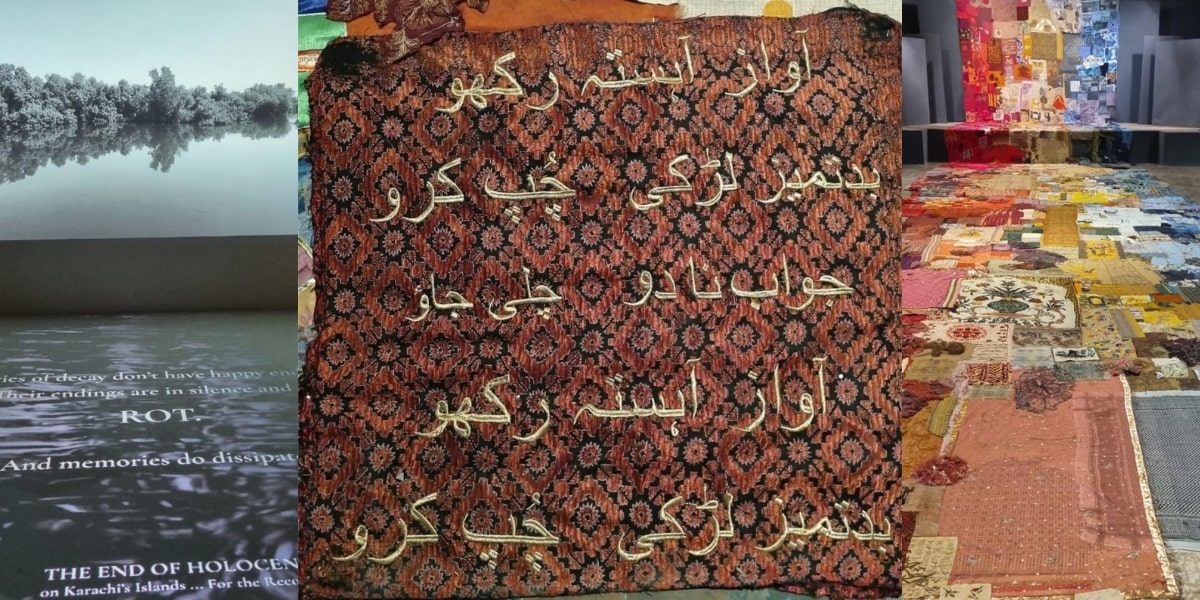 ies of decay don't have happy en
Their endings are in silence and
ROT.
And memories do dissipat
THE END OF HOLOCEN
on Karachi's Islands ... For the Reco
آواز آہستہ رکھو
بدتمیز لڑکی چُپ کرو
جواب نا دو چلی جاؤ
آواز آہستہ رکھو
بدتمیز لڑکی چُپ کرو